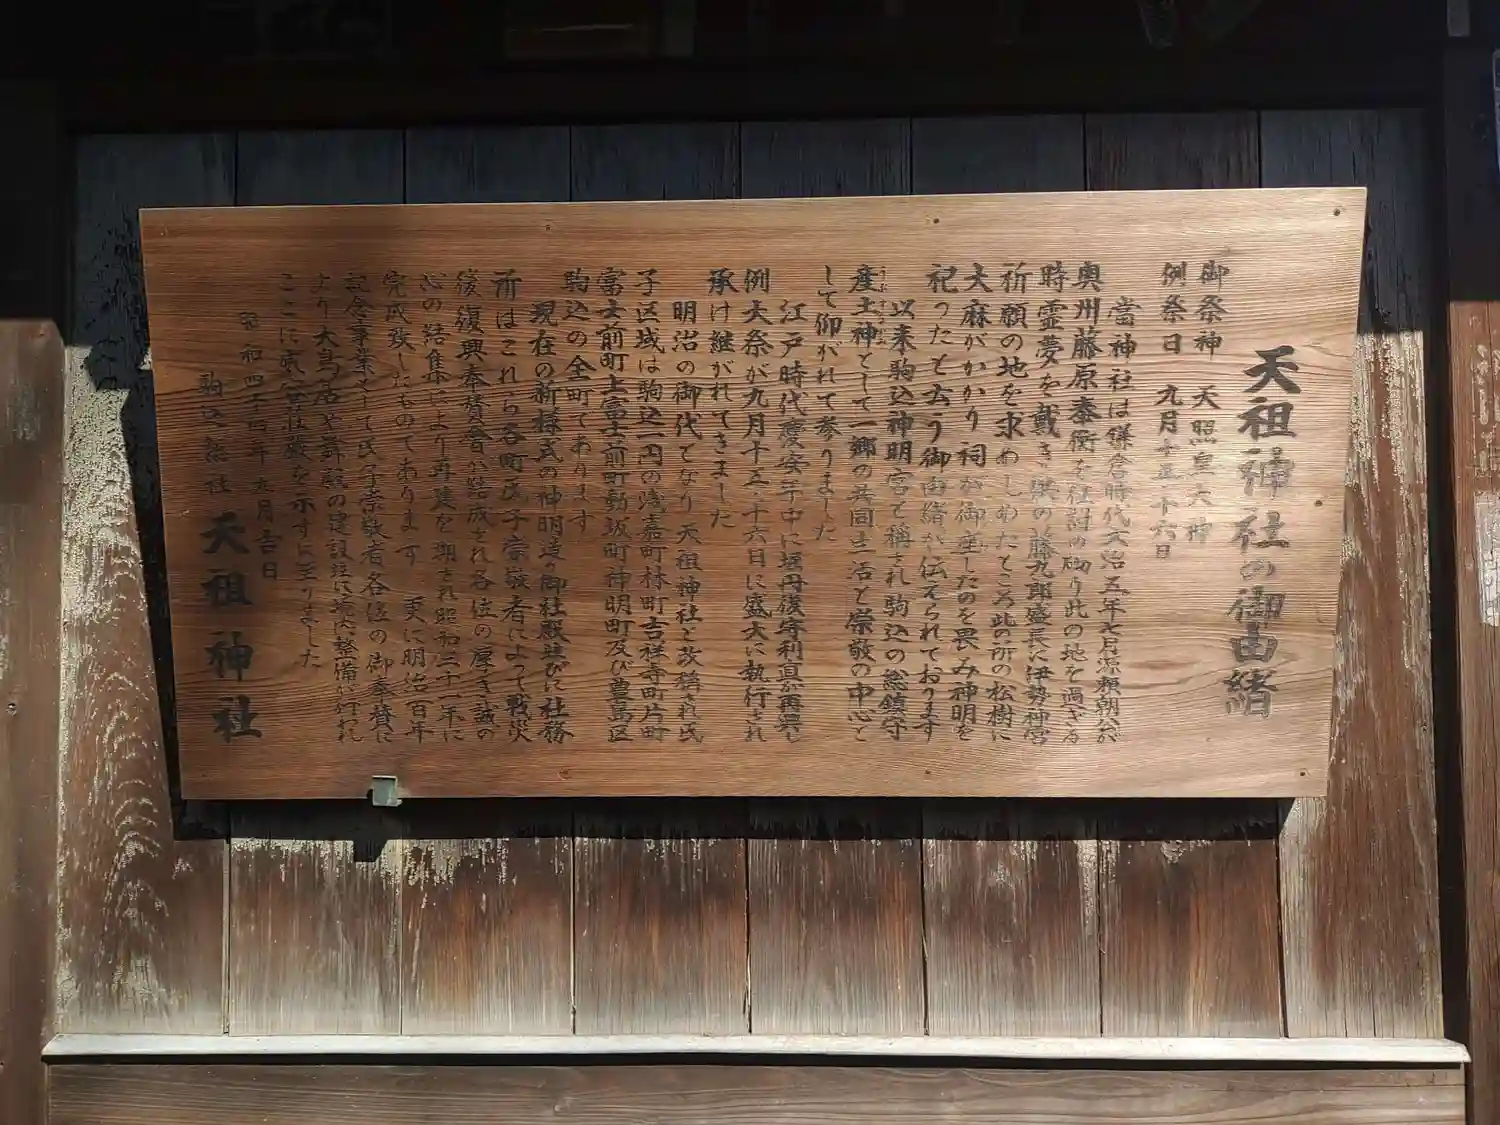 天祖神社の御由緒
御祭神 天照皇大神
例祭日 九月十五十六日
當神社は鎌倉時代文治五年七月源頼朝公が
奥州藤原泰衡を征討の砌り此の地を過ぎる
時霊夢を戴き供の藤九郎盛長に伊勢神宮
祈願の地を求めしめたところ此の所の松樹に
大麻がかかり祠が御座したのを畏み神明を
祀ったと云う御由緒が伝えられております
以来駒込神明宮と称され駒込の総鎮守
産土神として一郷の共同生活と崇敬の中心と
して仰がれて参りました
江戸時代慶安年中に堀丹後守利直が再興し
例大祭が九月十五・十六日に盛大に執行され
承け継がれてきました
明治の御代となり天祖神社と改称され氏
子区域は駒込一円の浅嘉町林町吉祥寺町片町
富士前町上富士前町動坂町神明町及び豊島区
駒込の全町であります
現在の新様式の神明造の御社殿並びに社務
所はこれら各町氏子崇敬者によって戦災
後復興奉賛會が結成され各位の厚き誠の
心の結集により再建を期され昭和三十一年に
完成致したものであります 更に明治百年
記念事業として氏子崇敬者各位の御奉賛に
より大鳥居や舞殿の建設並に境内整備が行われ
ここに荘厳を示すに至りました
昭和四十四年九月吉日
駒込総社 天祖神社